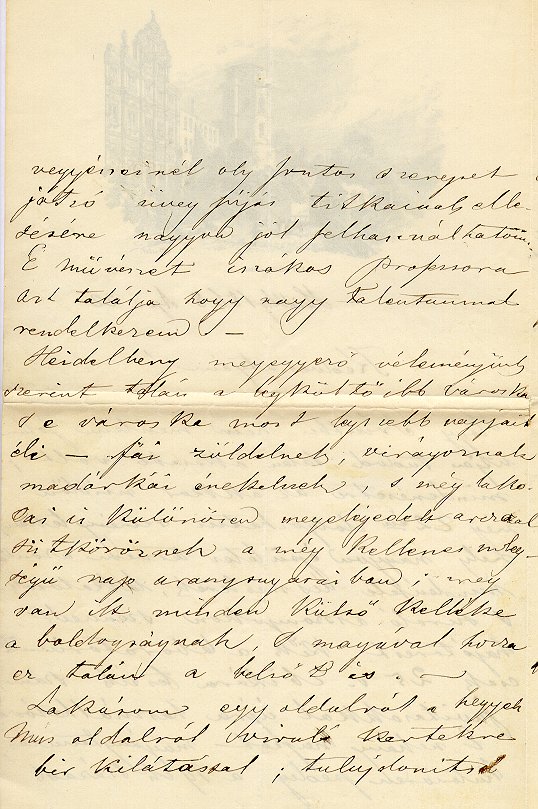 vegyészeinél oly fontos szerepet
játszó üveg fújás titkainak elle-
sésére nagyon jól felhasználhatom.
E művészet iszákos Professora
azt találja hogy nagy Talentummal
rendelkezem —
Heidelberg megegyező véleményünk
szerint talán a legköltőibb városka
s e városke most legszebb napjait
éli — fái zöldelnek, virágoznak
madárkái énekelnek, s még lako-
sai is különösen megelégedett arczczal
sütköröznek a még kellemes meleg-
ségű nap aranysugaraiban; meg
van itt minden külső kelléke
a boldogságnak, s magával hozza
ez talán a belsőt is. —
Lakásom egy oldalról a hegyek
mus oldalról viruló kertekre
bir kilátással; tulajdonítsd